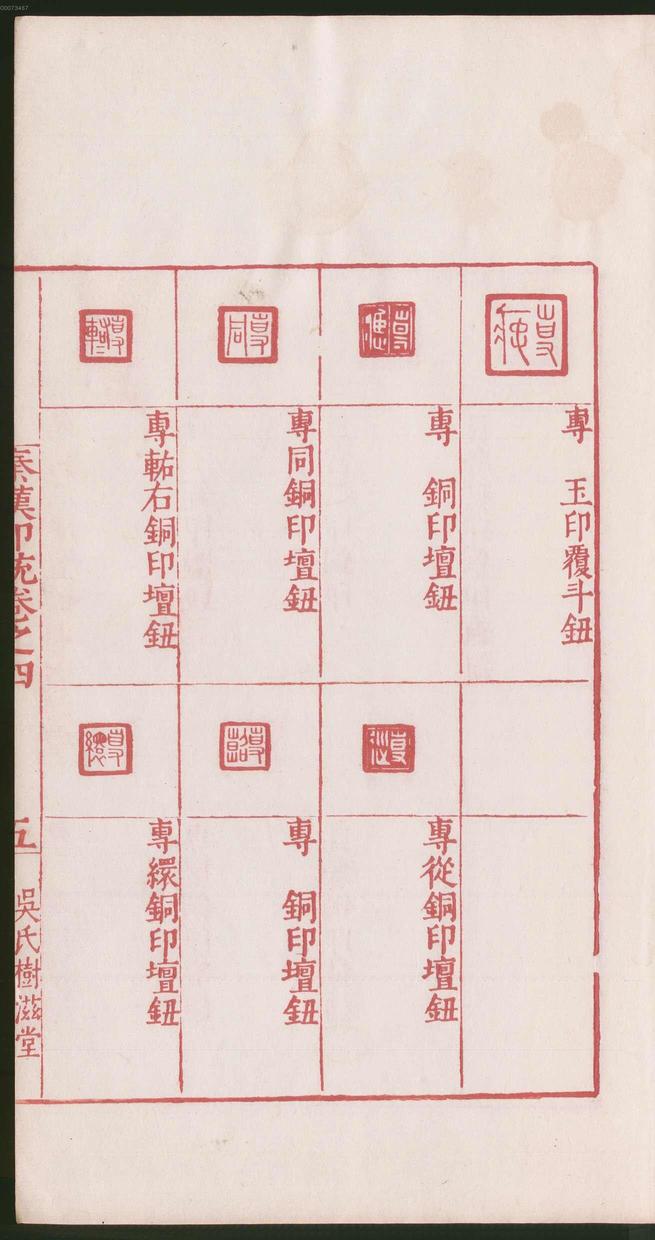 00073467
專　玉印覆斗鈕
專　銅印壇鈕
專同銅印壇鈕
專軲右銅印壇鈕
專從銅印壇鈕
專　銅印壇鈕
專繯銅印壇鈕
秦漢印統卷之四
五
吳氏樹滋堂